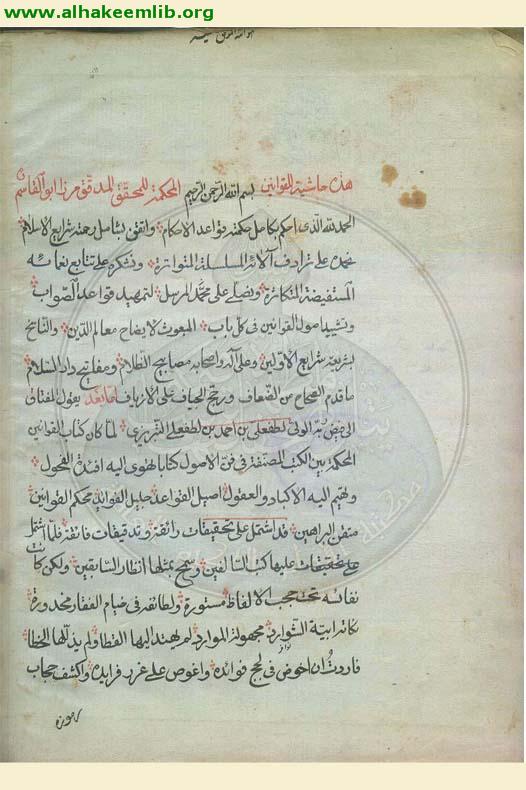 www.alhakeemlib.org
هذه حاشية القوانين بسم الله الرحمن الرحيم المحكمة للمحقق المدقق مرزا ابو القاسم
الحمد لله الذى احكم بكامل حكمته قواعد الاحكام واتقن بشامل رحمته شرايع الاسلام
نحمده على ترادف آلائه المسلسلة المتواترة ونشكره على تتابع نعمائه
المستفيضة المتكاثرة ونصلى على محمد المرسل لتمهيد قواعد الصواب
وتشييد اصول القوانين فى كل باب المبعوث لايضاح معالم الدين والناسخ
بشريعته شرايع الاولين وعلى آله واصحابه مصابيح الظلام ومفاتيح دار السلام
ما قدم الصحاح من الضعاف ورجح الجياف على الازياف اما بعد يقول المفتاق
الى فيض ربه الوفى لطفعلى بن احمد بن لطفعلى التبريزى لما كان كتاب القوانين
المحكمة بين الكتب المصنفة فى فن الاصول كتابا تهوى اليه افئدة الفحول
وتهيم اليه الاكباد والعقول اصيل القواعد جليل الفوائد محكم القوانين
متقن البراهين قد اشتمل على تحقيقات رائقة وتدقيقات فائقة قلما اشتمل
على تحقيقات عليها كتب السالفين وسمح بمثلها انظار السابقين ولكن كانت
نفائسه تحت حجب الالفاظ مستورة ولطائفه فى خيام الفقار مخدورة
كانها ابية الشوارد مجهولة الموارد لم يهتد اليها القطا ولم يذللها الخطا
فاردت ان اخوض فى لجج فوائده واغوص على غرر فرايده واكشف حجاب